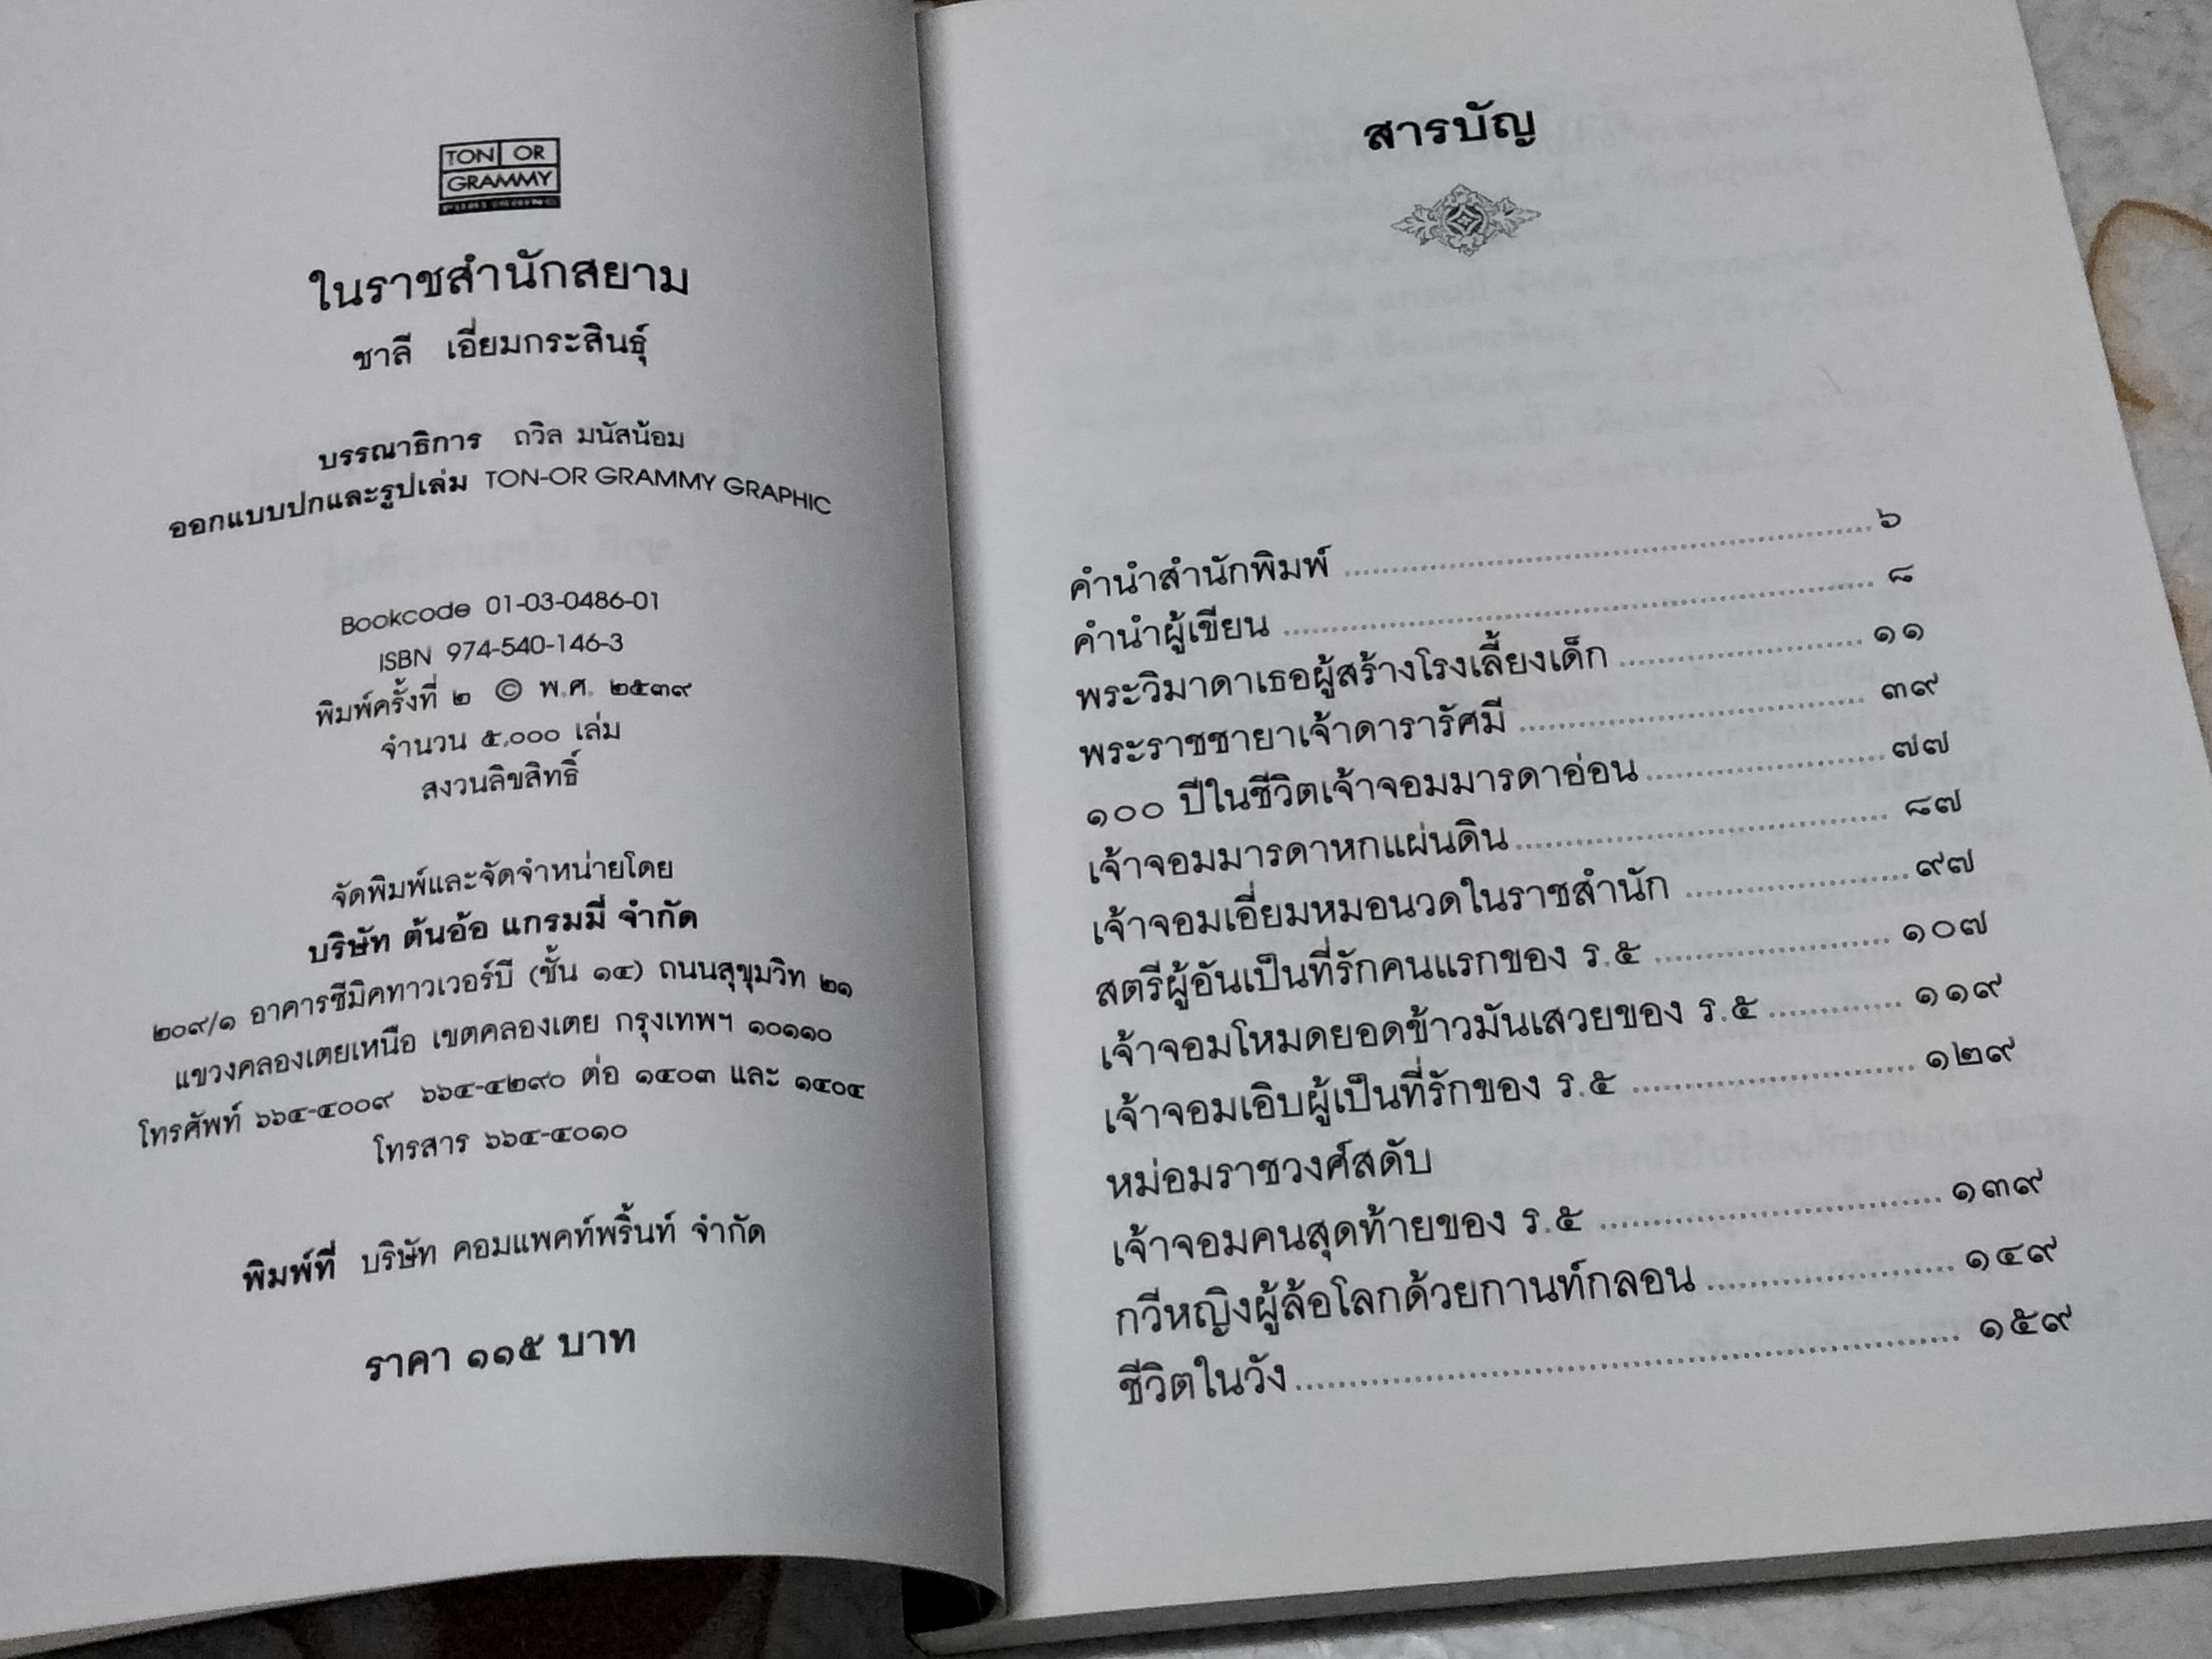 TON OR
GRAMMY
ในราชสำนักสยาม
ชาลี เอี่ยมกระสินธุ์
บรรณาธิการ ถวิล มนัสน้อม
ออกแบบปกและรูปเล่ม TON-OR GRAMMY GRAPHIC
Bookcode 01-03-0486-01
ISBN 974-540-146-3
พิมพ์ครั้งที่ ๒ © พ.ศ. ๒๕๓๙
จำนวน ๕,๐๐๐ เล่ม
สงวนลิขสิทธิ์
จัดพิมพ์และจัดจำหน่ายโดย
บริษัท ต้นอ้อ แกรมมี่ จำกัด
๒๐๙/๑ อาคารซีมิคทาวเวอร์บี (ชั้น ๑๔) ถนนสุขุมวิท ๒๑
แขวงคลองเตยเหนือ เขตคลองเตย กรุงเทพฯ ๑๐๑๑๐
โทรศัพท์ ๖๖๔-๔๐๐๙ ๖๖๔-๔๒๙๐ ต่อ ๑๔๐๓ และ ๑๔๐๔
โทรสาร ๖๖๔-๔๐๑๐
พิมพ์ที่ บริษัท คอมแพคท์พริ้นท์ จำกัด
ราคา ๑๑๕ บาท
สารบัญ
คำนำสำนักพิมพ์ ........ ๖
คำนำผู้เขียน ........ ๘
พระวิมาดาเธอผู้สร้างโรงเลี้ยงเด็ก ........ ๑๑
พระราชชายาเจ้าดารารัศมี ........ ๓๙
๑๐๐ ปีในชีวิตเจ้าจอมมารดาอ่อน ........ ๗๗
เจ้าจอมมารดาหกแผ่นดิน ........ ๘๗
เจ้าจอมเอี่ยมหมอนวดในราชสำนัก ........ ๙๗
สตรีผู้อันเป็นที่รักคนแรกของ ร.๕ ........ ๑๐๗
เจ้าจอมโหมดยอดข้าวมันเสวยของ ร.๕ ........ ๑๑๙
เจ้าจอมเอิบผู้เป็นที่รักของ ร.๕ ........ ๑๒๙
หม่อมราชวงศ์สดับ
เจ้าจอมคนสุดท้ายของ ร.๕ ........ ๑๓๙
กวีหญิงผู้ล้อโลกด้วยกานท์กลอน ........ ๑๔๙
ชีวิตในวัง ........ ๑๕๙